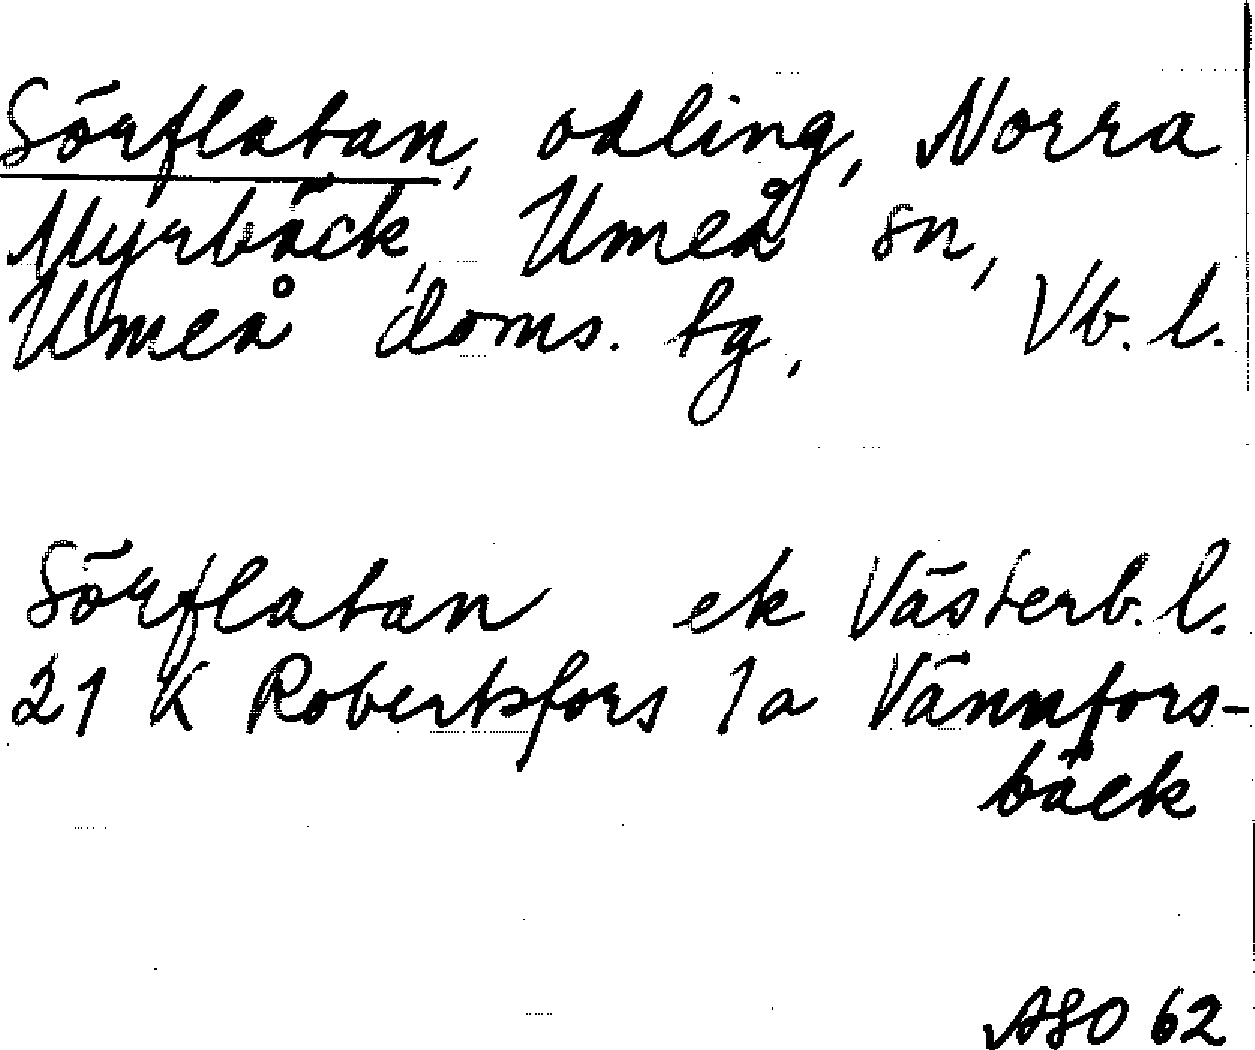 Sörflatan, odling, Norra
Myrbäck, Umeå sn,
Umeå doms. tg, Vb. l.
Sörflatan ek Västerb. l.
21 K Robertsfors 1a Vännfors-
bäck
ASO 62